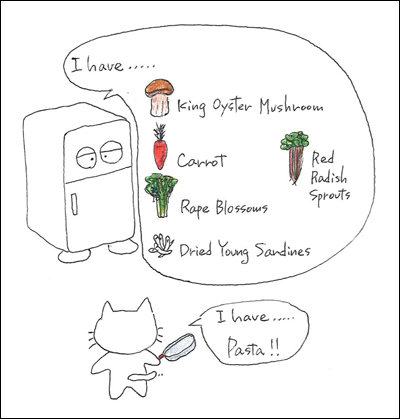 I have.....
King Oyster Mushroom
Carrot
Red
Radish
Sprouts
Rape Blossoms
Dried Young Sardines
I have.....
Pasta!!